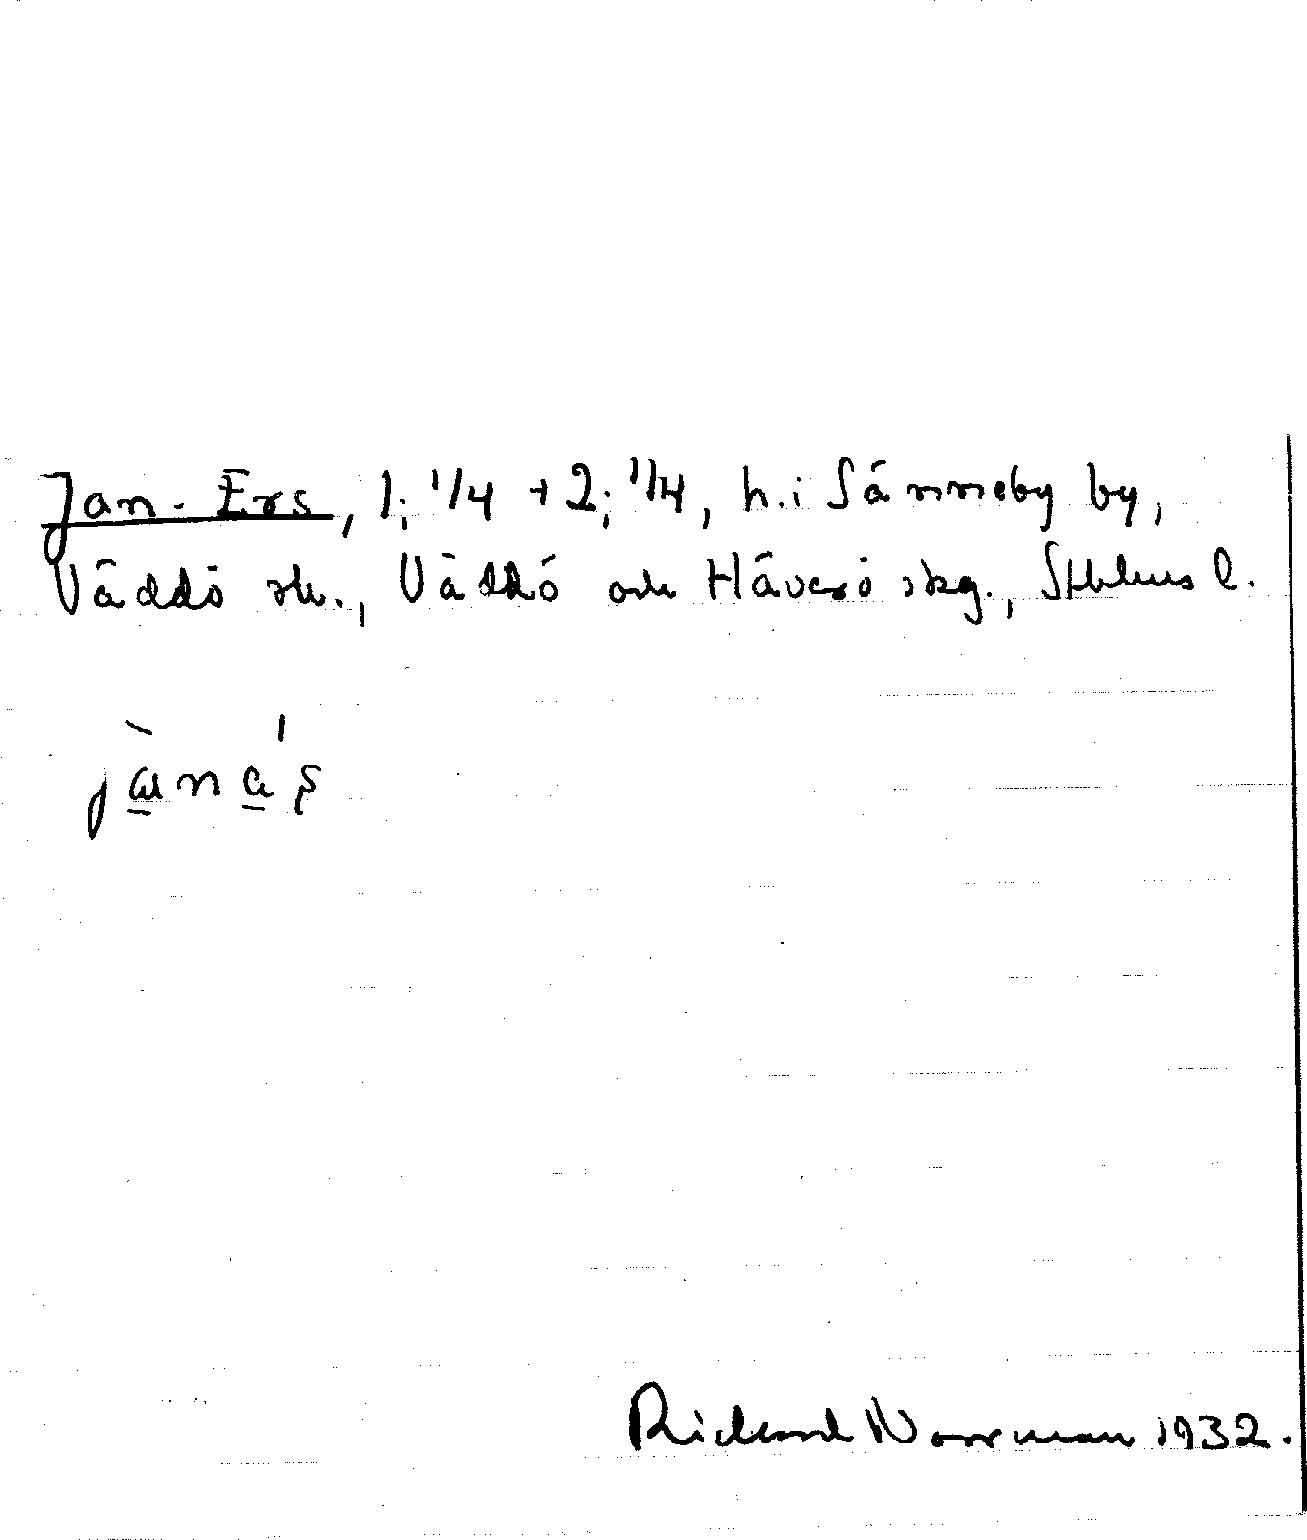 Jan-Ers, 1; 1/4 + 2; 1/4, h. i Sämmeby by,
Väddö sn., Väddö och Häverö skg., Sthlms l.
jànás
Richard Norrman 1932.